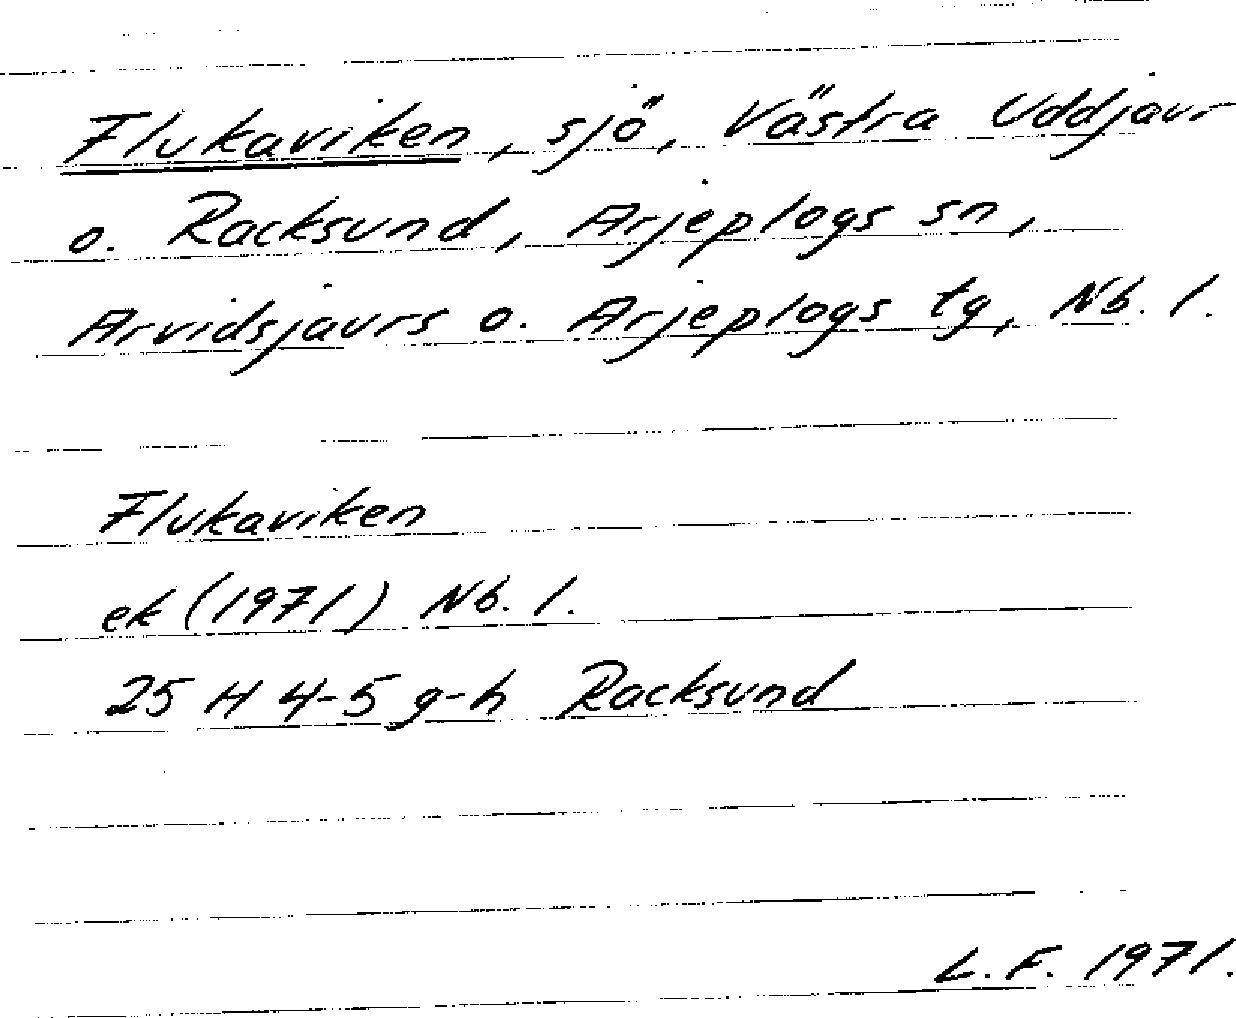 Flukaviken, sjö, Västra Uddjaur
o. Racksund, Arjeplogs sn,
Arvidsjaurs o. Arjeplogs tg, Nb. l.
Flukaviken
ek (1971) Nb. l.
25 H 4-5 g-h Racksund
L. F. 1971.